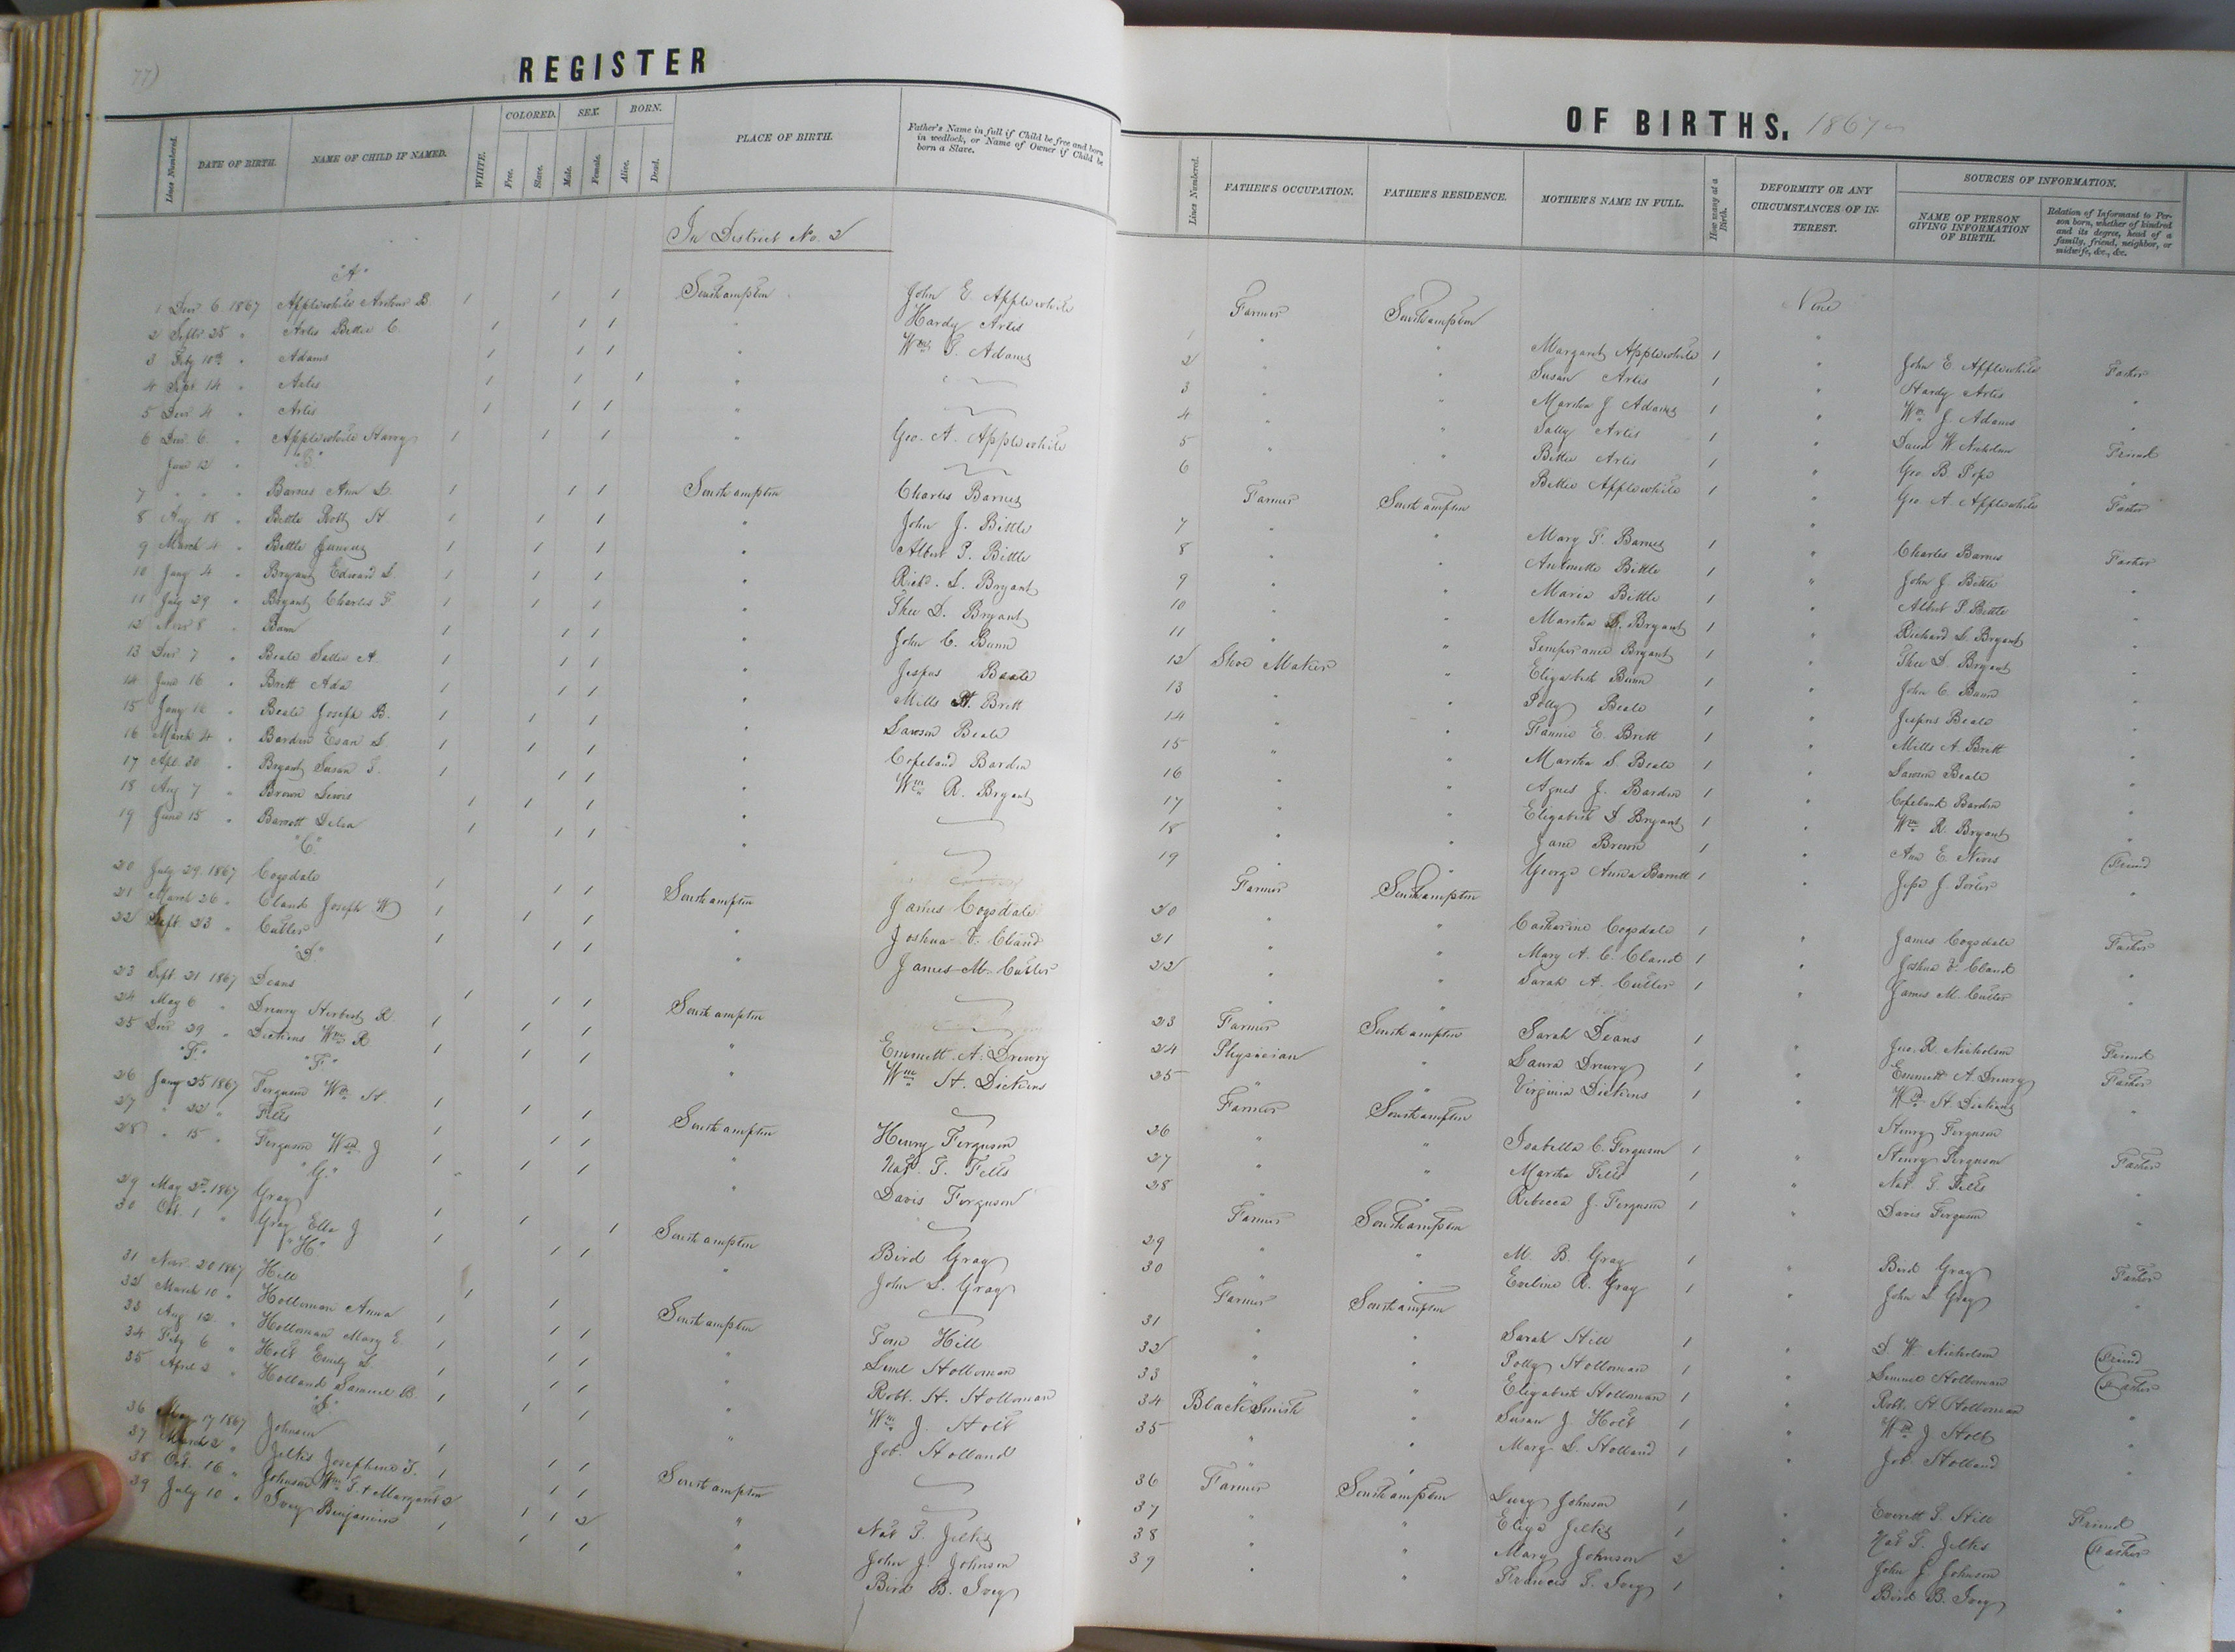 77)
REGISTER
Lines Numbered. DATE OF BIRTH. NAME OF CHILD IF NAMED. WHITE. COLORED. Free. Slave. SEX. Male. Female. BORN. Alive. Dead. PLACE OF BIRTH. Father's Name in full if Child be free and born in wedlock, or Name of Owner if Child be born a Slave.
In District No. 2
"A"
1 Decr 6. 1867 Applewhite Arthur B. 1 1 1 Southampton John E. Applewhite
2 Septr 25 " Artis Bettie C. 1 1 1 " Hardy Artis
3 Feby 10th " Adams 1 1 1 " Wm. J. Adams
4 Sept 14 " Artis 1 1 1 "
5 Decr 4 " Artis 1 1 1 "
6 Decr 6. " Applewhite Harry 1 1 1 " Geo. A. Applewhite
June 12 " "B"
7 " " " Barnes Ann L. 1 1 1 Southampton Charles Barnes
8 Aug 18 " Bittle Robt H 1 1 1 " John J. Bittle
9 March 4 " Bittle Junius 1 1 1 " Albert P. Bittle
10 Jany 4 " Bryant Edward L. 1 1 1 " Richd. L. Bryant
11 July 29 " Bryant Charles F. 1 1 1 " Theo D. Bryant
12 Novr 8 " Bunn 1 1 1 " John C. Bunn
13 Decr 7 " Beale Sallie A. 1 1 1 " Jesper Beale
14 June 16 " Brett Ada 1 1 1 " Mills A. Brett
15 Jany " Beale Joseph B. 1 1 1 " Lawson Beale
16 March 4 " Barden Esau L. 1 1 1 " Copeland Barden
17 Apl. 20 " Bryant Susan T. 1 1 1 " Wm R. Bryant
18 Aug 7 " Brown Lewis 1 1 1 "
19 June 15 " Barrett Delia 1 1 1 "
"C"
20 July 29. 1867 Cogsdale 1 1 1 Southampton James Cogsdale
21 March 26 " Claud Joseph W 1 1 1 " Joshua V. Claud
22 Sept. 23 " Cutler 1 1 1 " James M. Cutler
"D"
23 Sept. 21 1867 Deans 1 1 1 Southampton
24 May 6 " Drewry Herbert R. 1 1 1 " Emmett A. Drewry
25 Decr 29 " Dickins Wm R 1 1 1 " Wm H. Dickins
"F" "F"
26 Jany 25 1867 Ferguson Wm H. 1 1 1 Southampton Henry Ferguson
27 " 22 " Felts 1 1 1 " Nat. T. Felts
28 " 15 " Ferguson Wm. J 1 1 1 " Davis Ferguson
"G"
29 May 2nd. 1867 Gray 1 1 1 Southampton Bird Gray
30 Oct. 1 " Gray Ella J 1 1 1 " John L. Gray
"H"
31 Novr 20 1867 Hill 1 1 1 Southampton Tom Hill
32 March 10 " Holloman Anna 1 1 1 " Leml Holloman
33 Aug 12. " Holloman Mary E. 1 1 1 " Robt. H. Holloman
34 Feby 6 " Holt Emily L. 1 1 1 " Wm J. Holt
35 April 2 " Holland Samuel B. 1 1 1 " Job. Holland
"J"
36 May 17 1867 Johnson 1 1 1 Southampton
37 March 2 " Jelks Josephine T. 1 1 1 " Nat T. Jelks
38 Oct. 16 " Johnson Wm T. & Margaret 2 1 1 2 " John J. Johnson
39 July 10 " Ivey Benjamin 1 1 1 " Bird B. Ivey
OF BIRTHS. 1867
Lines Numbered. FATHER'S OCCUPATION. FATHER'S RESIDENCE. MOTHER'S NAME IN FULL. How many at a Birth. DEFORMITY OR ANY CIRCUMSTANCES OF INTEREST. SOURCES OF INFORMATION. NAME OF PERSON GIVING INFORMATION OF BIRTH. Relation of Informant to Person born, whether of kindred and its degree, head of a family, friend, neighbor, or midwife, &c., &c.
1 Farmer Southampton Margaret Applewhite 1 None John E. Applewhite Father
2 " " Susan Artis 1 " Hardy Artis "
3 " " Martha J Adams 1 " Wm. J. Adams "
4 " " Sally Artis 1 " David W. Nicholson Friend
5 " " Bettie Artis 1 " Geo. B. Pope "
6 " " Bettie Applewhite 1 " Geo A Applewhite Father
7 Farmer Southampton Mary F. Barnes 1 " Charles Barnes Father
8 " " Antonette Bittle 1 " John J. Bittle "
9 " " Maria Bittle 1 " Albert P. Bittle "
10 " " Martha L. Bryant 1 " Richard L. Bryant "
11 " " Temperance Bryant 1 " Theo D. Bryant "
12 Shoe Maker " Elizabeth Bunn 1 " John C. Bunn "
13 " " Polly Beale 1 " Jesper Beale "
14 " " Fannie E. Brett 1 " Mills A. Brett "
15 " " Martha S. Beale 1 " Lawson Beale "
16 " " Agnes J. Barden 1 " Copeland Barden "
17 " " Elizabeth D Bryant 1 " Wm R. Bryant "
18 " " Jane Brown 1 " Ann E. Friend
19 " " George Anna Barrett 1 " Jesse J. Porter "
20 Farmer Southampton Catharine Cogsdale 1 " James Cogsdale Father
21 " " Mary A. C. Claud 1 " Joshua V. Claud "
22 " " Sarah A. Cutler 1 " James M. Cutler "
23 Farmer Southampton Sarah Deans 1 " Jno. R. Nicholson Friend
24 Physician " Laura Drewry 1 " Emmett A. Drewry Father
25 " " Virginia Dickins 1 " Wm H. Dickins "
Henry Ferguson
26 Farmer Southampton Isabella C. Ferguson 1 " Henry Ferguson Father
27 " " Martha Felts 1 " Nat. T. Felts "
28 " " Rebecca J. Ferguson 1 " Davis Ferguson "
29 Farmer Southampton M. B. Gray 1 " Bird Gray Father
30 " " Eveline R. Gray 1 " John L. Gray "
31 Farmer Southampton Sarah Hill 1 " D. W. Nicholson Friend
32 " " Polly Holloman 1 " Lemuel Holloman Father
33 " " Elizabeth Holloman 1 " Robt. H Holloman "
34 BlackSmith " Susan J. Holt 1 " Wm J Holt "
35 " " Mary L. Holland 1 " Job. Holland "
36 Farmer Southampton Lucy Johnson 1 " Everett T. Hill Friend
37 " " Eliza Jelks 1 " Nat T. Jelks Father
38 " " Mary Johnson 2 " John J. Johnson "
39 " " Frances T. Ivey 1 " Bird B. Ivey "